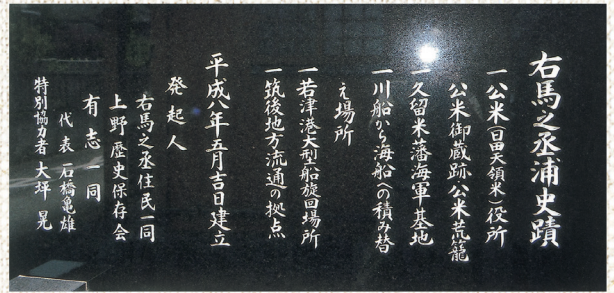 右馬之丞浦史蹟
一公米(日田天領米)役所
公米御蔵跡公米荒籠
一久留米藩海軍基地
一川船から海船への積み替
え場所
一若津港大型船旋回場所
一筑後地方流通の拠点
平成八年五月吉日建立
発起人
右馬之丞住民一同
上野歴史保存会
有志一同
代表 石橋亀雄
特別協力者 大坪晃